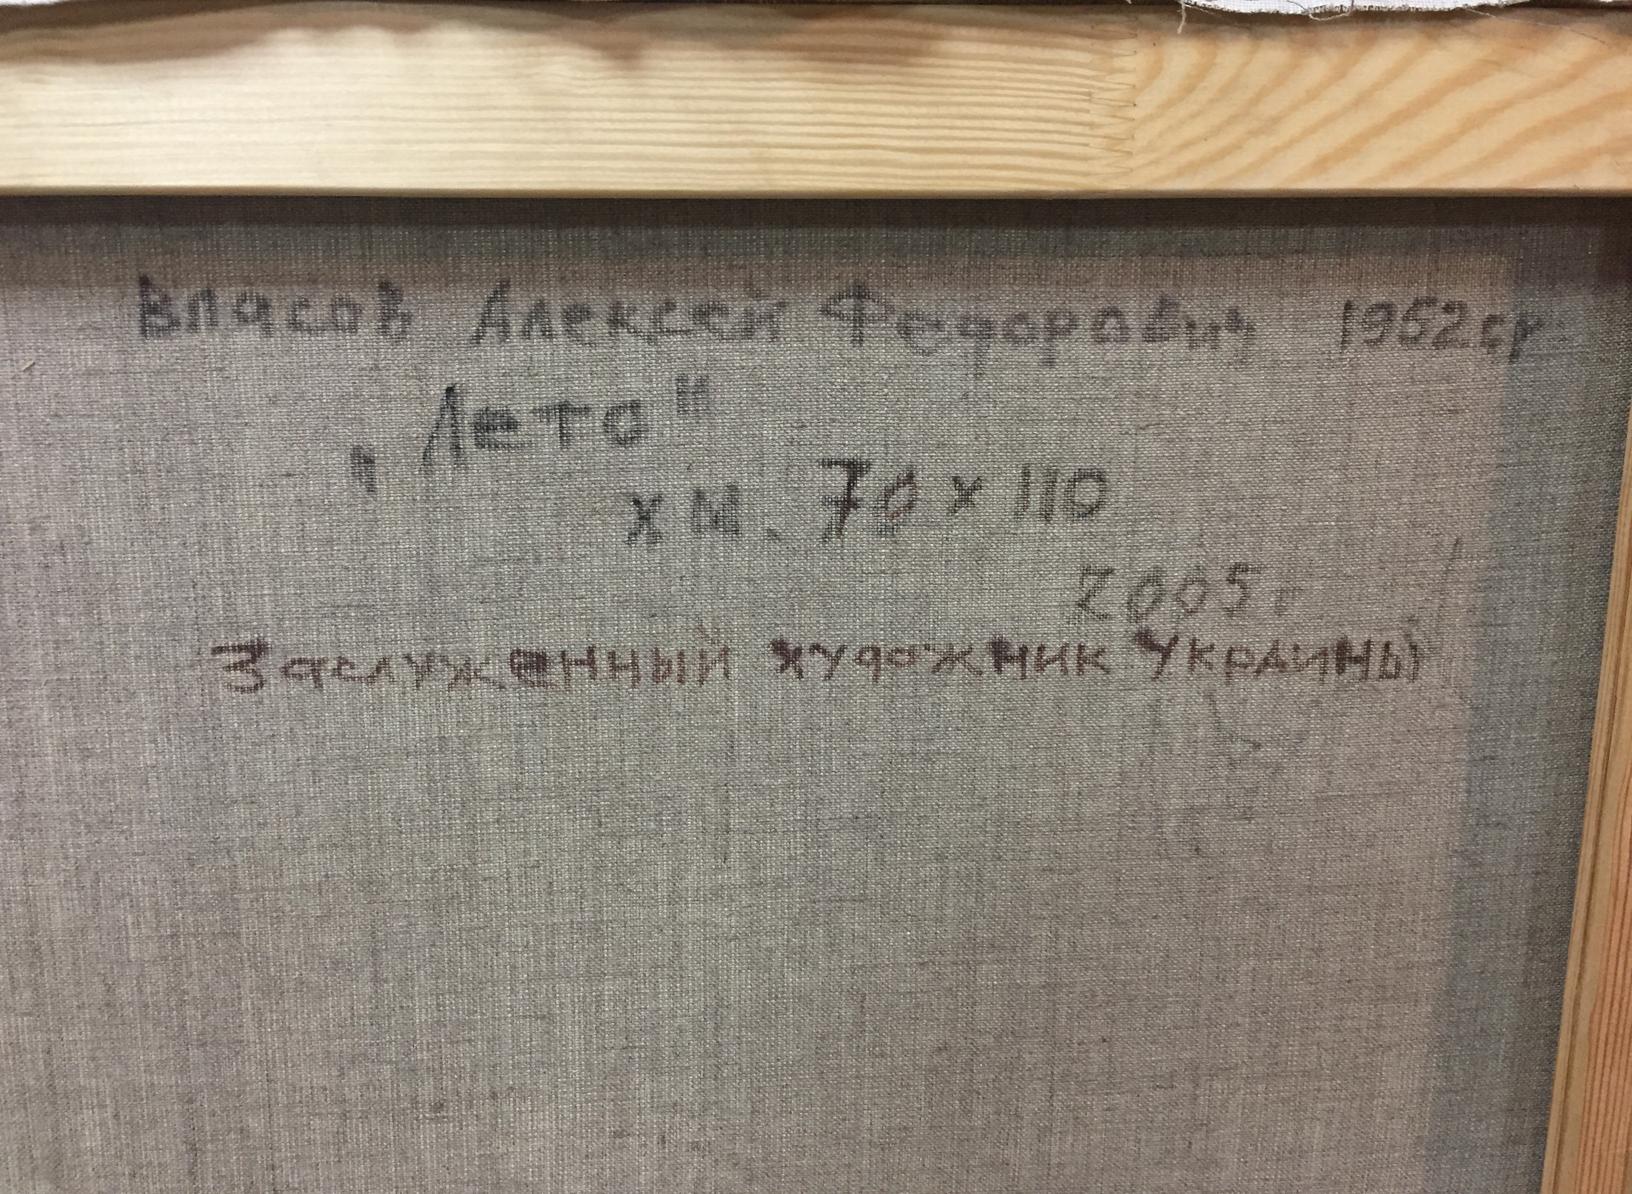 Власов Алексей Федорович 1952гр
„Лето"
хм. 70 х 110
2005г
Заслуженный художник Украины